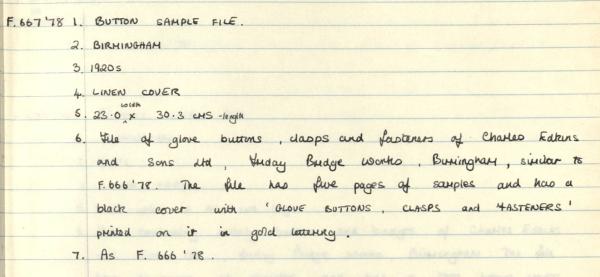 F.667'78 1. BUTTON SAMPLE FILE.
2. BIRMINGHAM
3. 1920s
4. LINEN COVER
width
5. 23.0 x 30.3 CMS - length
6. File of glove buttons, clasps and fasteners of Charles Edkins
and Sons Ltd, Friday Bridge Works, Birmingham, similar to
F.666'78. The file has five pages of samples and has a
black cover with 'GLOVE BUTTONS, CLASPS and FASTENERS'
printed on it in gold lettering.
7. As F. 666 '78.